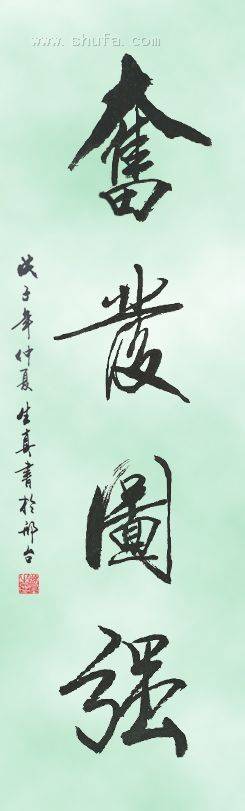 www.shufa.com
奮發圖强
戊子年仲夏生真書於邢台